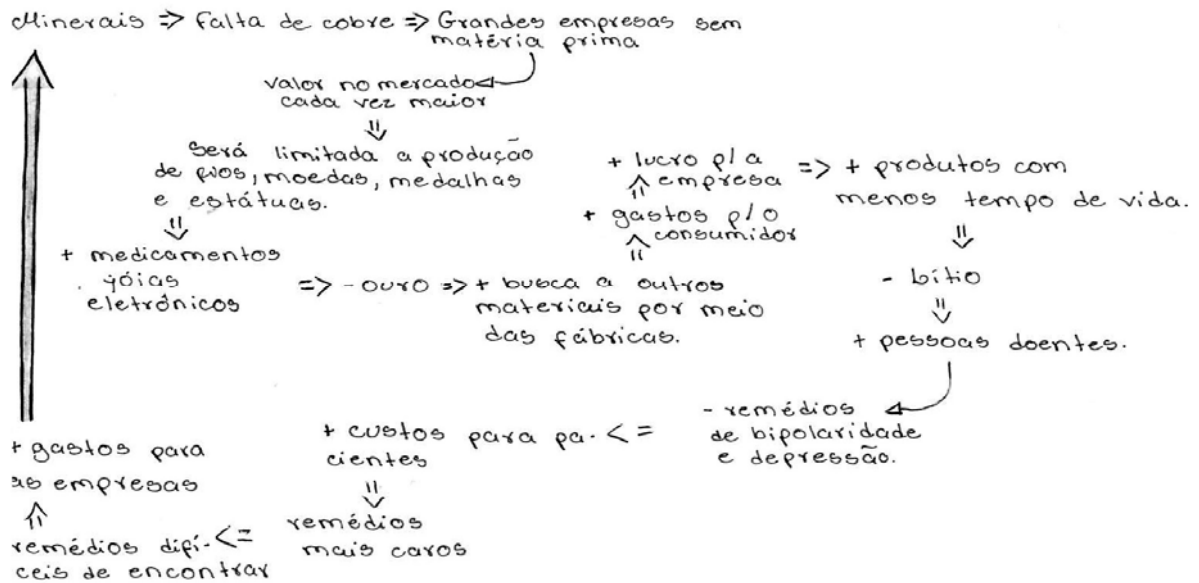 Minerais => Falta de cobre => Grandes empresas sem
matéria prima
valor no mercado
cada vez maior
Será limitada a produção
de fios, moedas, medalhas
e estátuas.
+ medicamentos
jóias
eletrônicos
=> - ouro => + busca a outros
materiais por meio
das fábricas.
+ gastos p/ o
consumidor
+ lucro p/ a
empresa
=> + produtos com
menos tempo de vida.
- lítio
+ pessoas doentes.
- remédios
de bipolaridade
e depressão.
+ custos para pa- <=
cientes
remédios
mais caros
<=
remédios difí-
ceis de encontrar
+ gastos para
as empresas